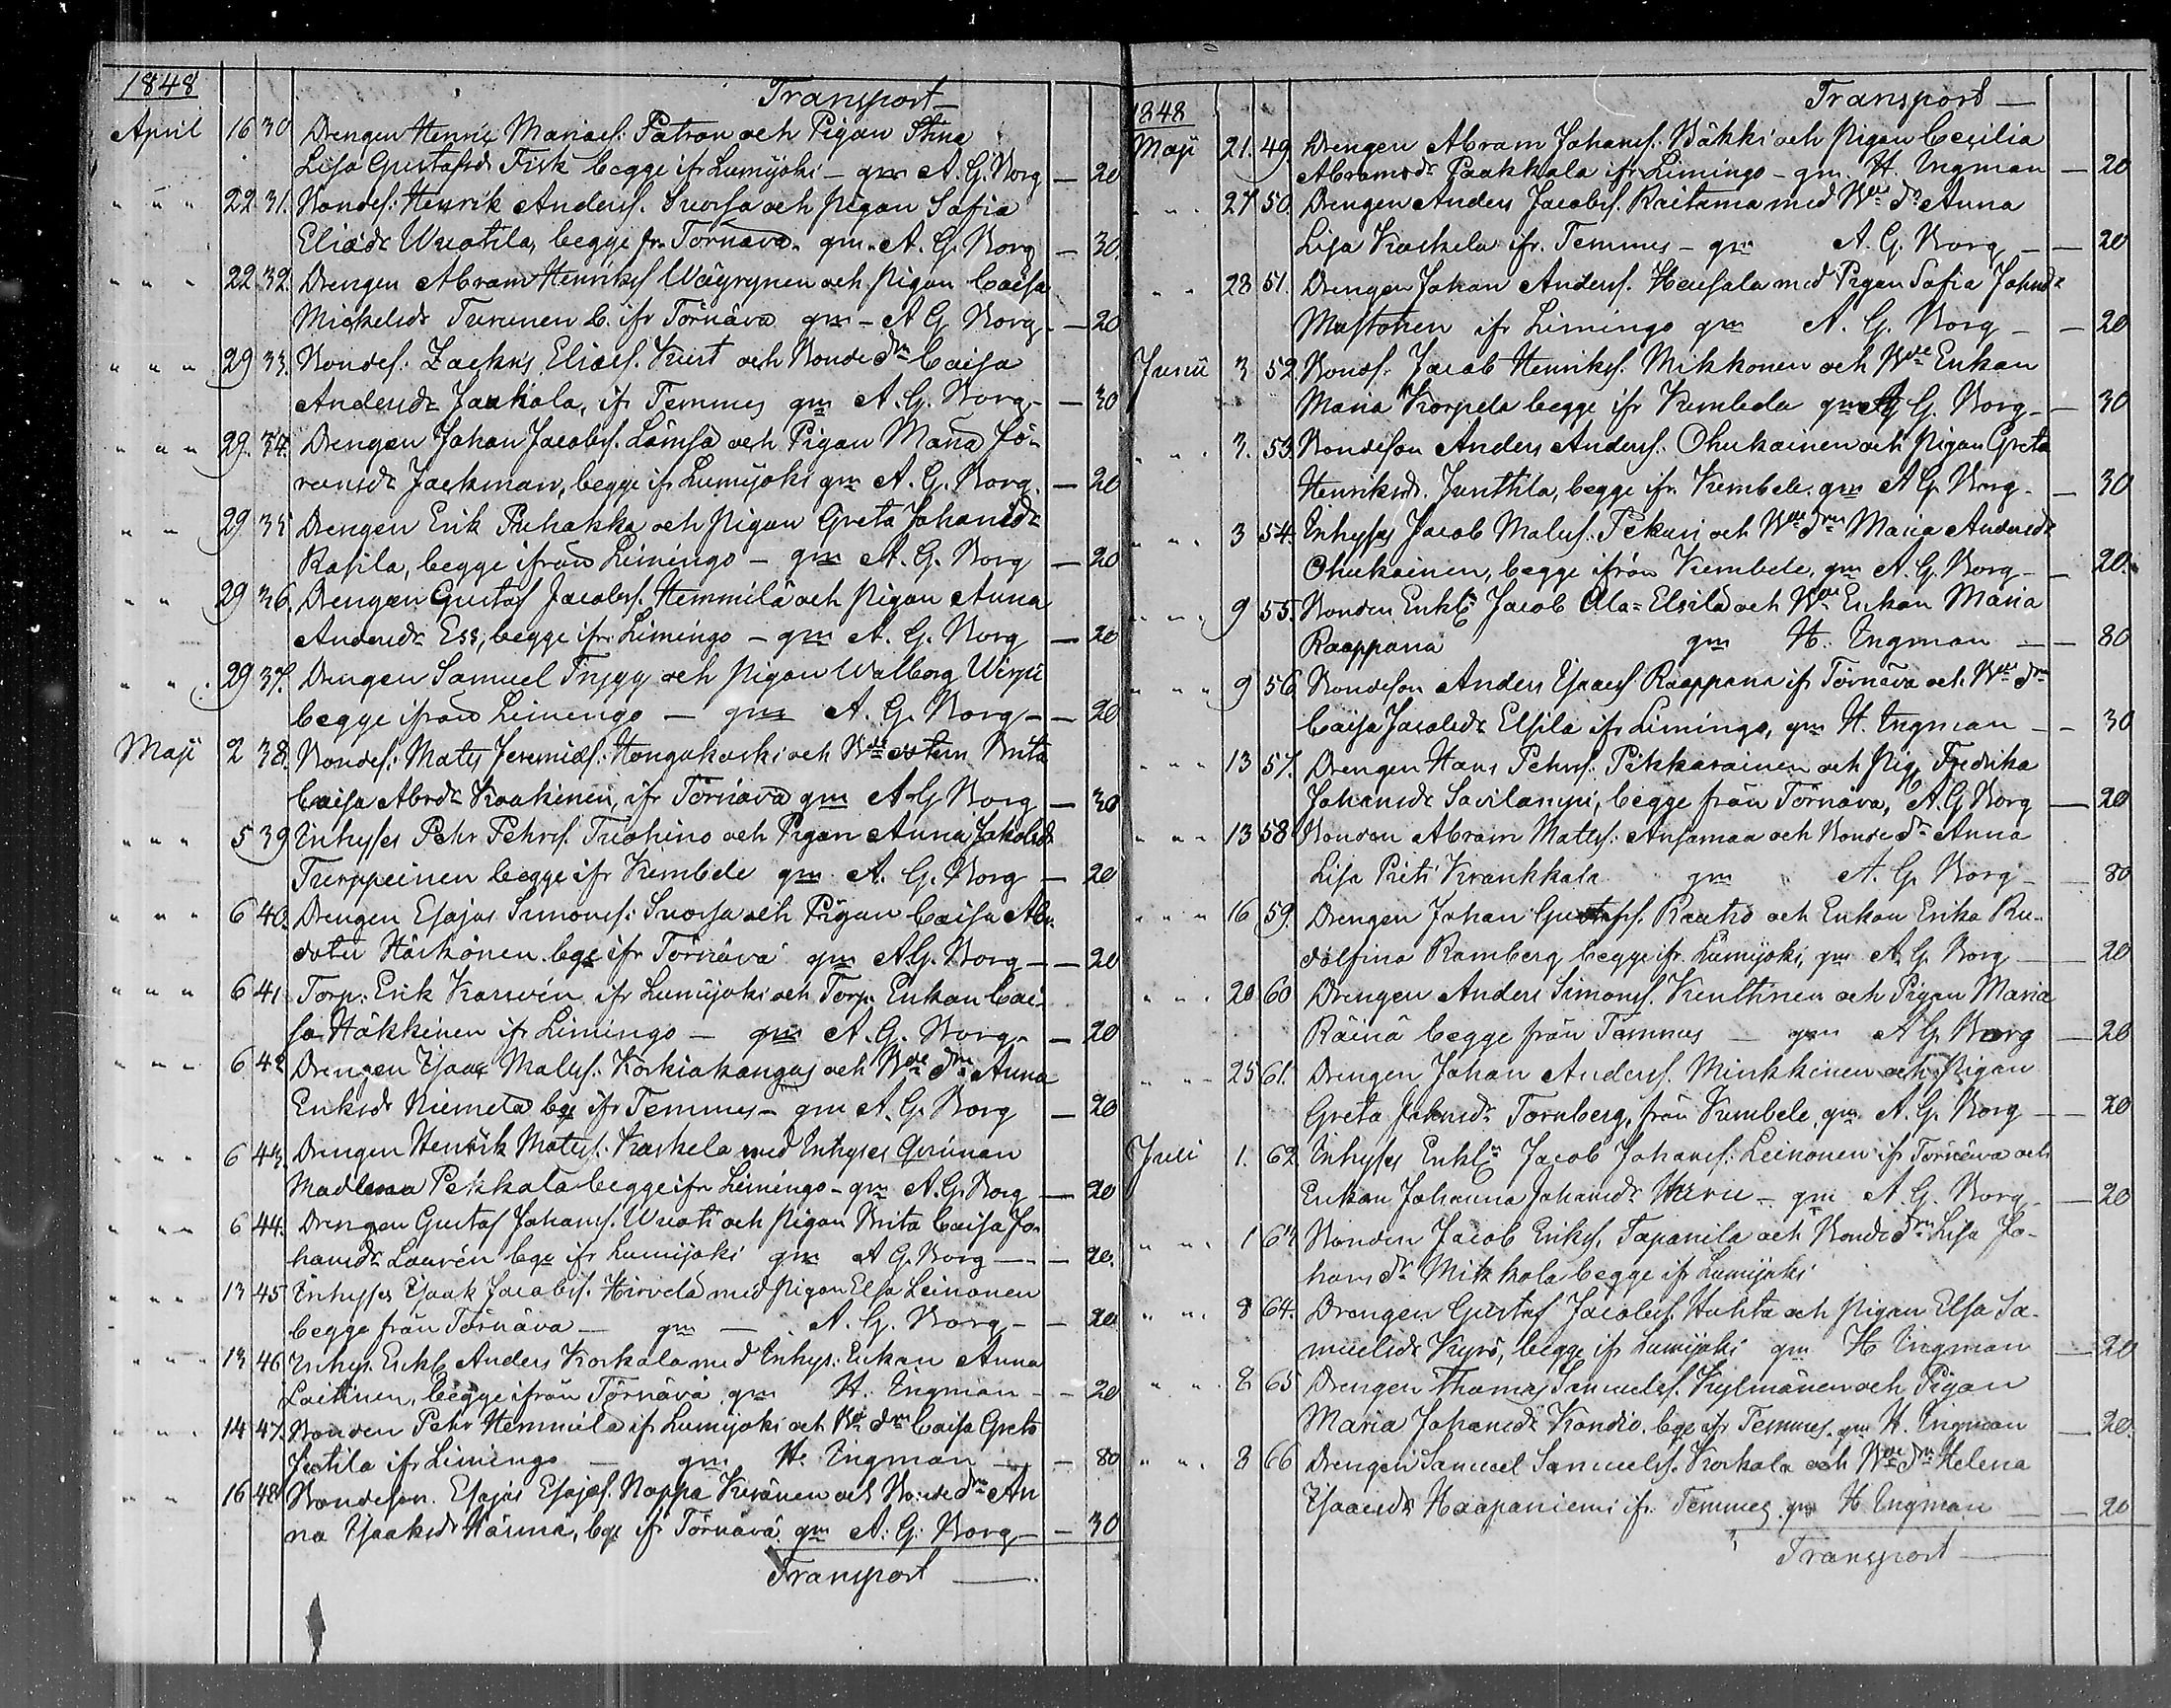 1848
Transport —
April 16 30 Drengen Henric Mariaes: Patron och Pigan Stina
Lisa Gustafsdr Fisk begge ifr Lumijoki — gm A. G. Borg — 20
" " " 22. 31. Bondes: Henrik Anders. Suorsa och pigan Safia
Eliædr Wuotila, begge fr. Tornava. gm. A. G. Borg — 30.
" " " 22 32. Drengen Abram Henriks Wäyrynen och pigan Caisa
Mickelsdr Turunen b. ifr Törnävä gm — A G Borg — 20
" " " 29 33. Bondes: Zachris Eliæs. Kurt och Bonde Drn Caisa
Andersdr Jaakola, ifr Temmes gm A. G. Borg — 30
" " " 29. 34. Drengen Johan Jacobs. Lämsä och Pigan Maria Jö-
ransdr Jackman, begge ifr Lumijoki gm A. G. Borg. — 20
" " 29 35 Drengen Erik Puhakka och pigan Greta Johansdr
Rasila, begge ifrån Limingo — gm A. G. Borg — 20
" " 29 36. Drengen Gustaf Jacobs. Hemmilä och pigan Anna
Andersdr Ess, begge ifr. Limingo — gm A. G. Borg — 20
" " . 29 37. Drengen Samuel Tryyy och pigan Walborg Wirpi
begge ifrån Limingo — gm A. G. Borg — 20
Maji 2 38. Bondes: Mats Jeremiæs: Hongakoski och Bde dotern Brita
Caisa Abrdr Kaakinen, ifr Törnävä gm A G Borg — 30
" " " 5 39 Inhyses Pehr Pehrs. Tuohino och Pigan Anna Jakobsdr
Turppeinen begge ifr Kembele gm A. G. Borg — 20
" " " 6 40. Drengen Esajas Simons: Suorsa och Pigan Caisa Abr.
doter Härkönen bge ifr Törnävä gm A.G. Borg — 20
" " " 6 41 Torp: Erik Karwén ifr Lumijoki och Torp. Enkan Cai-
sa Häkkinen ifr Limingo — gm A. G. Borg. — 20
" " " 6 42 Drengen Isaac Mats. Korkiakangas och Bde Drn Anna
Eriksdr Niemelä bge ifr Temmes — gm A. G. Borg — 20
" " " 6 43. Drengen Henrik Mats. Karhela med Inhyses Qvinnan
Madlena Pekkala begge ifr Limingo — gm A. G. Borg — 20
" " " 6 44. Drengen Gustaf Johans. Wuoti och pigan Brita Caisa Jo-
hansdr Laurén bge ifr Lumijoki gm A G. Borg — 20.
" " " 13 45 Inhyses Isaak Jacobs. Hirvelä med pigan Elsa Leinonen
begge från Törnävä — gm — A. G. Borg — 20
" " " 13 46 Inhys. Enkl. Anders Korkala med Inhys: Enkan Anna
Laitinen, begge ifrån Törnävä gm H. Ingman — 20
" " " 14 47. Bonden Pehr Hemmilä ifr Lumijoki och Bde drn Caisa Greta
Jutila ifr Limingo — gm H. Ingman — 80
" " 16 48 Bondeson. Esajas Esajæs. Noppa Keränen och Bonde drn An
na Isaaksdr Härmä, bge ifr Törnävä. gm A. G. Borg — 30
Transport —
1848
Transport —
Maji 21. 49. Drengen Abram Johans. Bäkki och pigan Cecilia
Abramsdr Paakkola ifr Limingo — gm. H. Ingman — 20
" " . 27 50. Drengen Anders Jacobs. Raitama med Bde dr Anna
Lisa Karhela ifr. Temmes — gm A. G. Borg — 20
" " 28 51. Drengen Johan Anders. Heusala med Pigan Safia Johnsdr
Mustonen ifr Limingo gm A. G. Borg — 20
Junii 3 52. Bonds. Jacob Henriks. Mikkonen och Bde Enkan
Maria Korpela begge ifr Kembele gm A G. Borg — 30
" " . 3. 53. Bondeson Anders Anders. Ohukainen och pigan Greta
Henriksdr. Junttila, begge ifr. Kembele. gm A G. Borg. — 30
" " . 3 54. Inhyses Jacob Mats. Pekuri och Bde drn Maria Andersdr
Ohukainen, begge ifrån Kembele, gm A. G. Borg — 20.
" " " 9 55. Bonden Enkl. Jacob Ala=Elsilä och Bde Enkan Maria
Raappana gm H. Ingman — 80
" " " 9 56 Bondeson Anders Esaæs Raappana ifr Törnävä och Bde drn
Caisa Jacobsdr Elsilä ifr Limingo, gm H. Ingman — 30
" " " 13 57. Drengen Hans Pehrs. Pikkarainen och pig. Fredrika
Johansdr Savilampi, begge från Törnävä, A. G Borg — 20
" " " 13 58 Bonden Abram Mats. Ansamaa och Bonde dr Anna
Lisa Prits Krankkala gm A. G. Borg — 80
" " " 16 59. Drengen Johan Gustafs. Rautio och Enkan Erika Ru-
dolfina Ramberg begge ifr. Lumijoki, gm A. G. Borg — 20
" " . 20 60 Drengen Anders Simons. Kenttinen och Pigan Maria
Räinä begge från Temmes — gm A G. Borg — 20
" " " 25 61. Drengen Johan Anders. Minkkinen och Pigan
Greta Johnsdr Tornberg, från Kembele, gm A. G. Borg — 20
Juli 1. 62. Inhyses Enkln Jacob Johans: Leinonen ifr Törnävä och
Enkan Johanna Johansdr Karvu — gm A. G. Borg — 20
" " " 1 63 Bonden Jacob Eriks. Tapanila och Bonde drn Lisa Jo-
hans dr Mikkola begge ifr Lumijoki
" " . 8 64. Drengen Gustaf Jacobs. Huhta och pigan Elsa Sa-
muelsdr Kyrö, begge ifr Lumijoki gm H Ingman — 20
" " . 8 65 Drengen Thomas Samuels. Kylmänen och Pigan
Maria Johansdr Kordio. bge ifr Temmes. gm H. Ingman — 20.
" " . 8 66 Drengen Samuel Samuels. Korkala och Bde drn Helena
Isaacsdr Haapaniemi ifr. Temmes gm H. Ingman — 20
Transport —